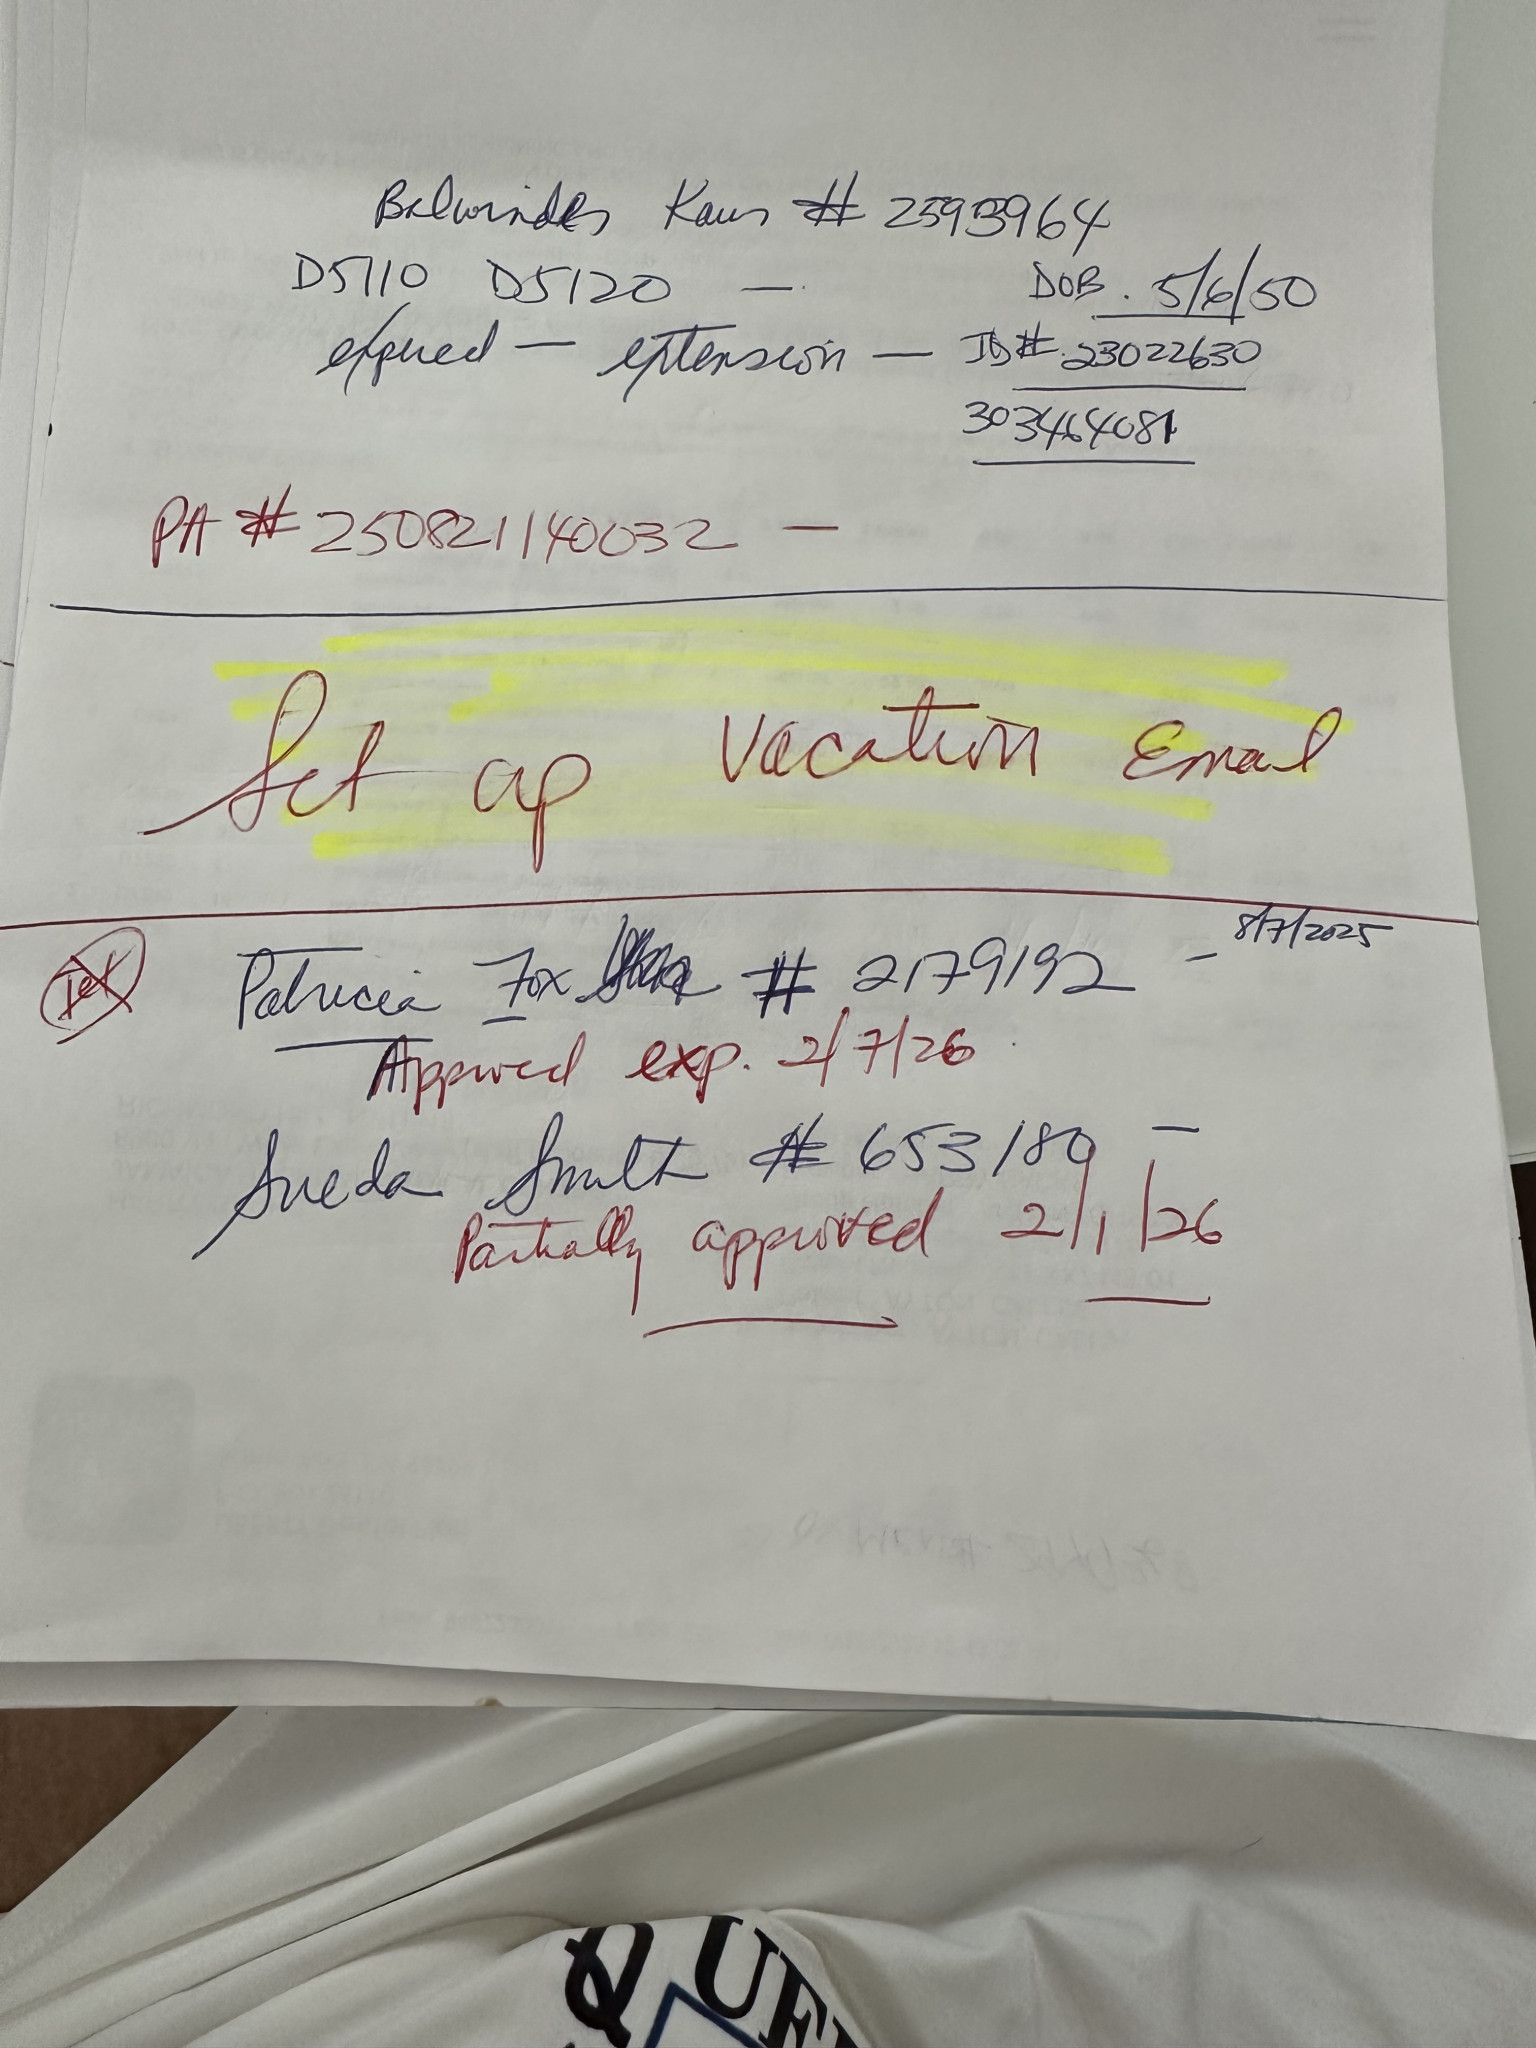 Balwinder Kaur # 2593964
D5110 D5120 — DOB. 5/6/50
expired — extension — ID#. 23022630
303464081
PA # 250821140032 —
Set up Vacation Email
Patricia Fox # 2179192 - 8/7/2025
Approved exp. 2/7/26
Sueda Smith # 653180 —
Partially approved 2/1/26
QUE